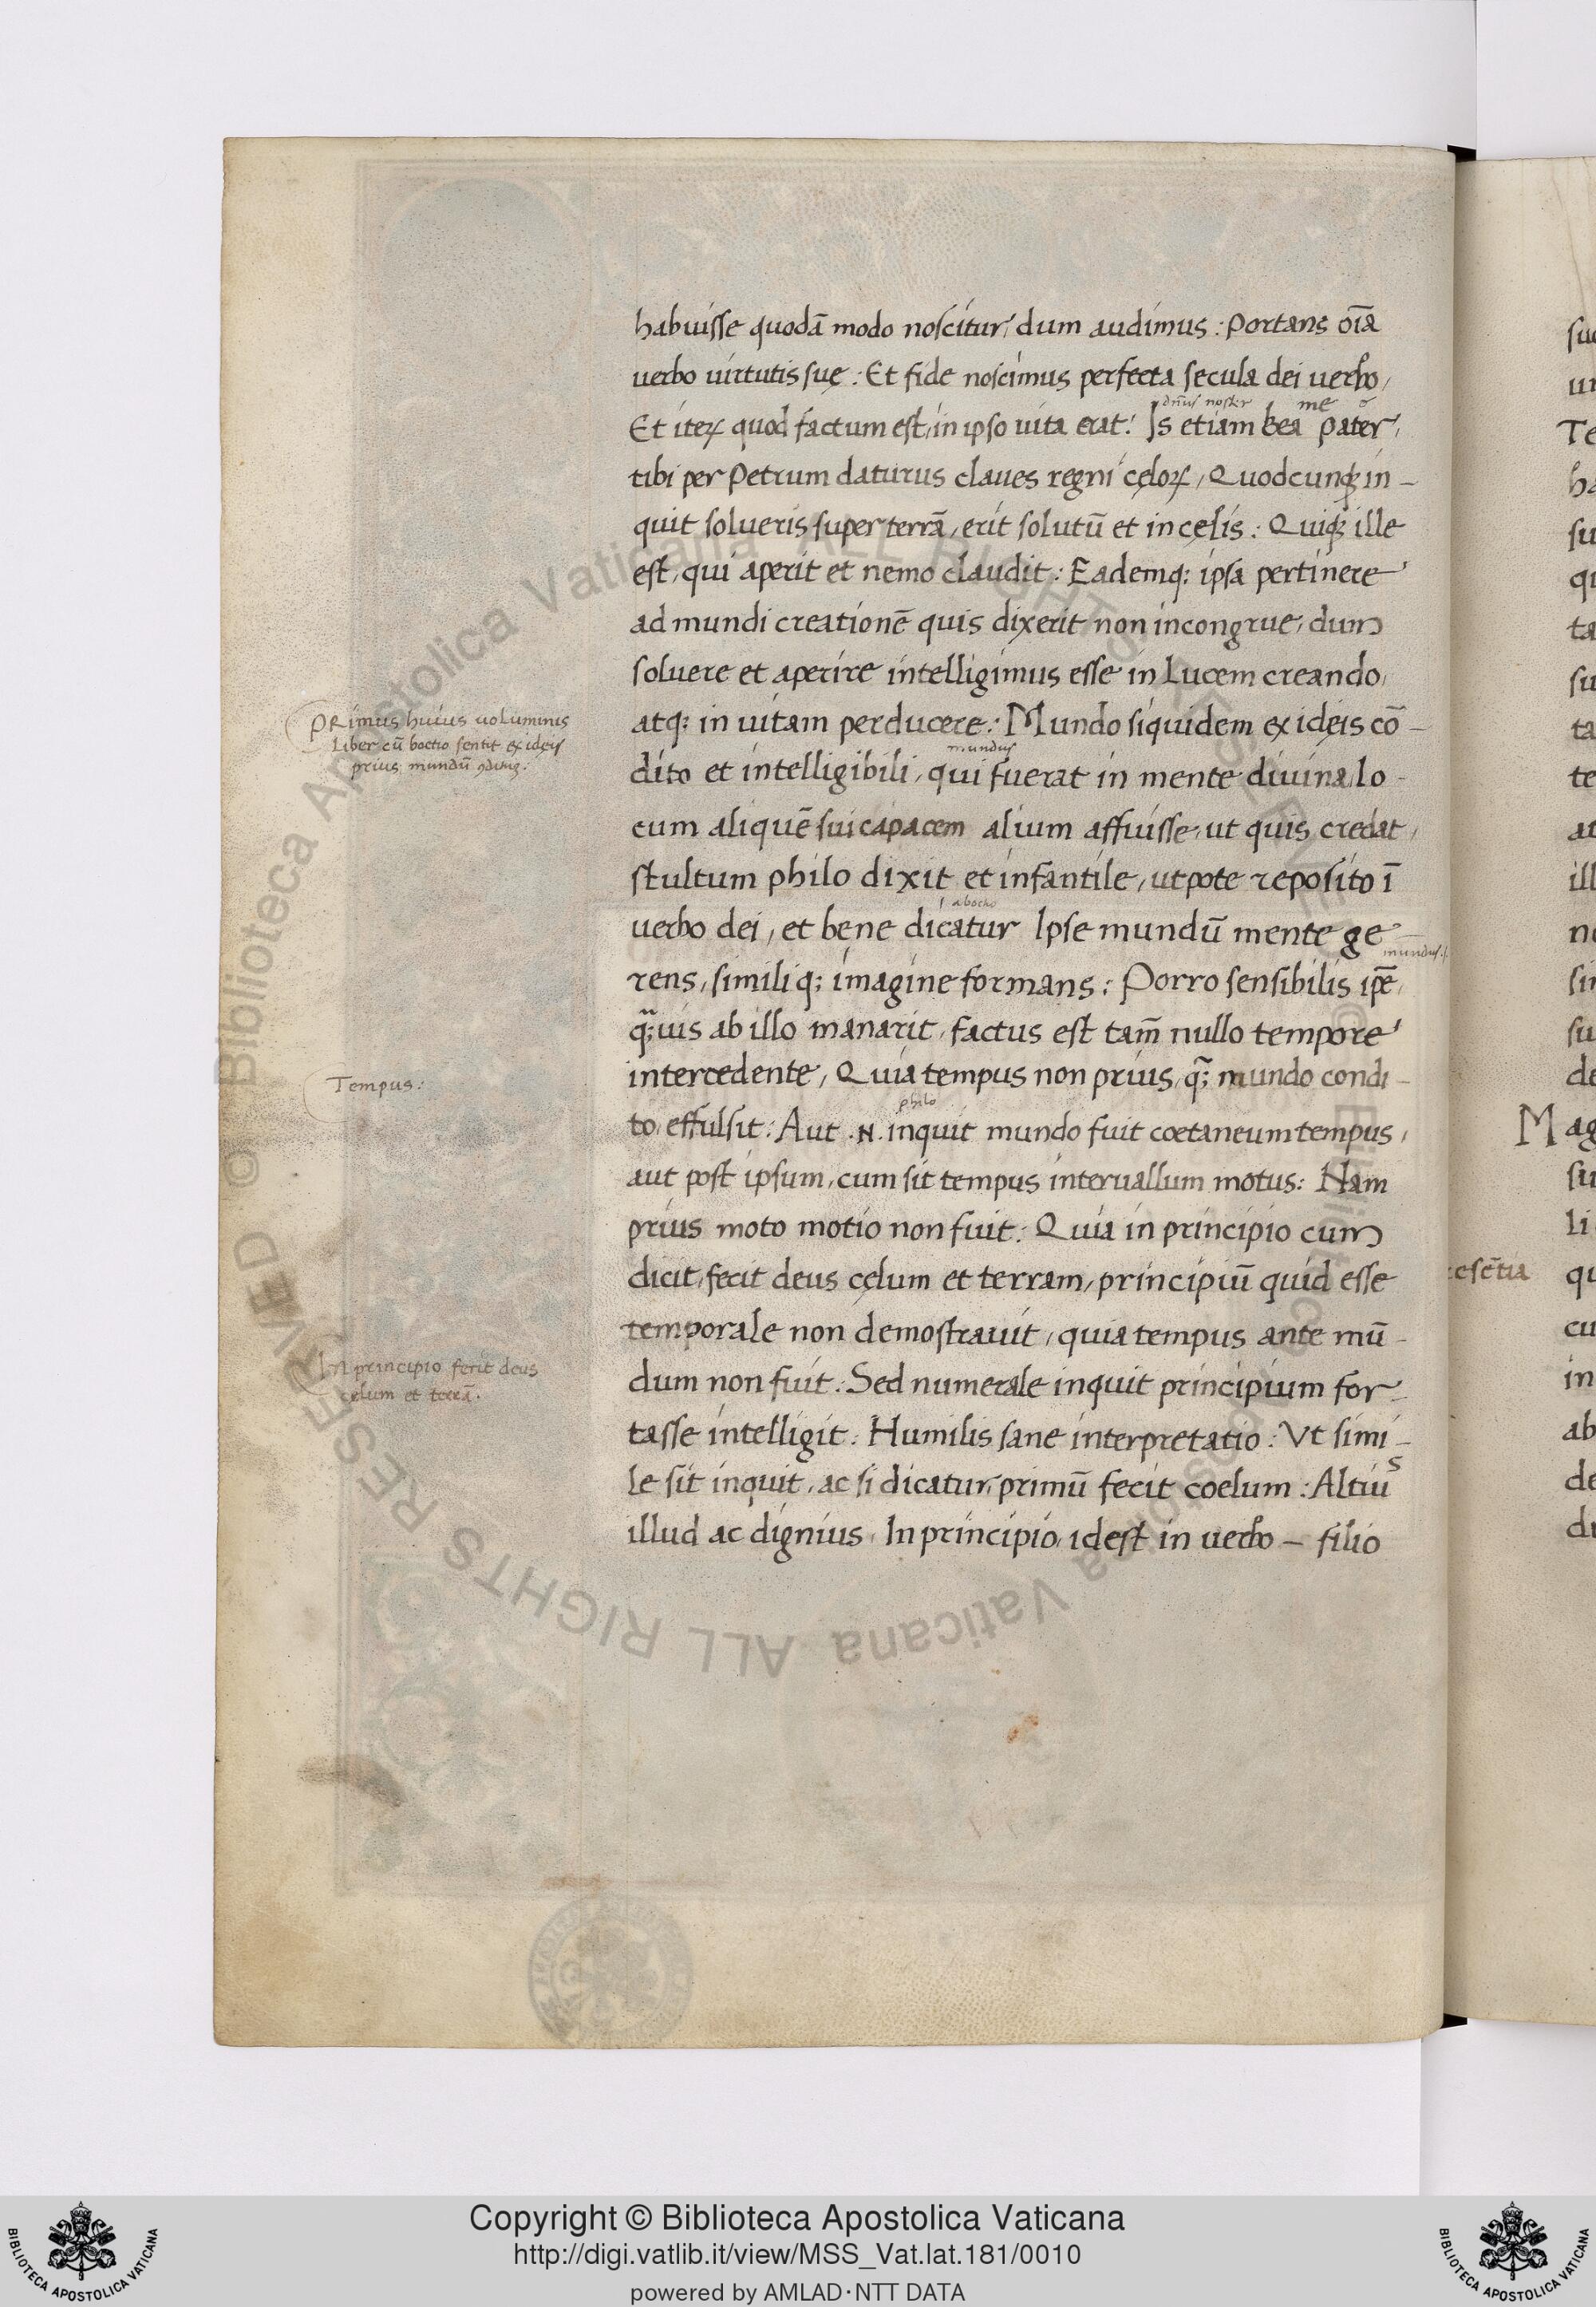 habuisse quodā modo noscitur, dum audimus : Portans oīa
uerbo uirtutis suę : Et fide noscimus perfecta secula dei uerbo,
dñus noster me ō
Et iteꝝ quod factum est, in ipso uita erat : Is etiam bea pater,
tibi per Petrum daturus claues regni cęloꝝ, Quodcunqꝫ in-
quit solueris super terrā, erit solutū et in cęlis : Quiqꝫ ille
est, qui aperit et nemo claudit : Eademqꝫ ipsa pertinere
ad mundi creationē quis dixerit non incongrue, dum
soluere et aperire intelligimus esse in lucem creando,
PRimus huius uoluminis
Liber cū boetio sentit ex idęis
prius mundū
atqꝫ in uitam perducere : Mundo siquidem ex idęis cō-
mundus
dito et intelligibili, qui fuerat in mente diuina, lo-
cum aliquē sui capacem alium affuisse, ut quis credat,
stultum philo dixit et infantile, utpote reposito ī
a boetio
uerbo dei, et bene dicatur Ipse mundū mente ge-
mundus
rens, similiqꝫ imagine formans : Porro sensibilis ipē,
qꝫ̄uis ab illo manarit, factus est tam̄ nullo tempore
Tempus :
intercedente, Quia tempus non prius, qꝫ̄ mundo condi-
philo
to, effulsit : Aut .N. inquit mundo fuit coetaneum tempus,
aut post ipsum, cum sit tempus interuallum motus : Nam
prius moto motio non fuit : Quia in principio cum
dicit, fecit deus cęlum et terram, principiū quid esse
temporale non demostrauit, quia tempus ante mū-
In principio fecit deus
cęlum et terrā.
dum non fuit : Sed numerale inquit principium for-
tasse intelligit : Humilis sane interpretatio : Vt simi-
le sit inquit, ac si dicatur, primū fecit coelum : Altius
illud ac dignius, In principio, idest in uerbo – filio
esētia
M
Copyright © Biblioteca Apostolica Vaticana
http://digi.vatlib.it/view/MSS_Vat.lat.181/0010
powered by AMLAD·NTT DATA
BIBLIOTECA APOSTOLICA VATICANA
BIBLIOTECA APOSTOLICA VATICANA
© Biblioteca Apostolica Vaticana ALL RIGHTS RESERVED
© Biblioteca Apostolica Vaticana ALL RIGHTS RESERVED